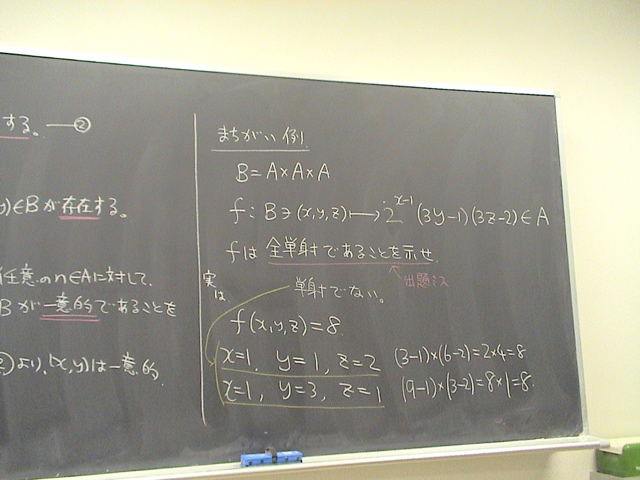 する。―②
)∈Bが存在する。
任意のn∈Aに対して、
Bが一意的であることを
②より、(x,y)は一意的
まちがい例
B=A×A×A
f:B∋(x,y,z)⟼2^{x-1}(3y-1)(3z-2)∈A
fは全単射であることを示せ。
出題ミス
実は、
単射でない。
f(x,y,z)=8
x=1, y=1, z=2 (3-1)×(6-2)=2×4=8
x=1, y=3, z=1 (9-1)×(3-2)=8×1=8.